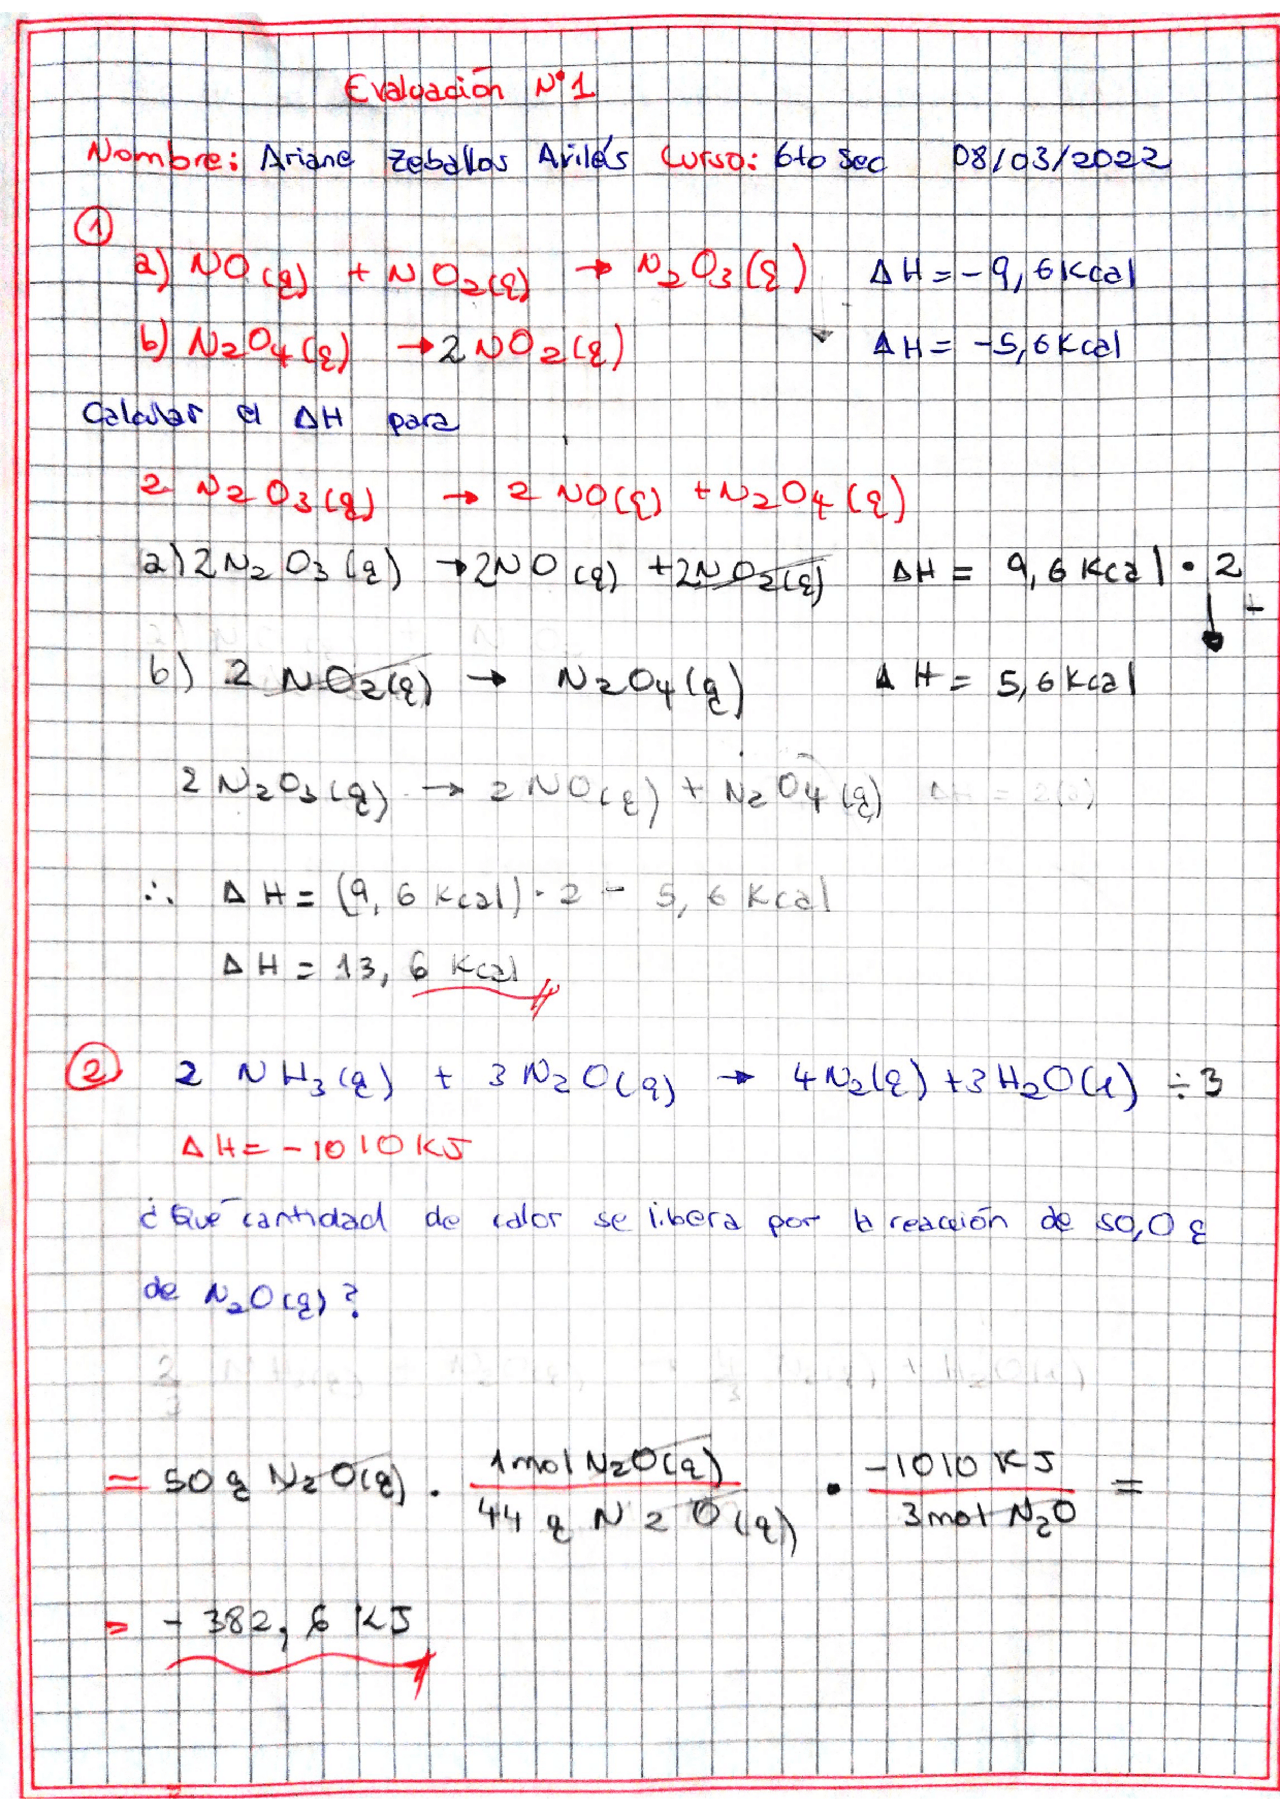 Evaluación N°1
Nombre: Ariane Zeballos Avilés Curso: 6to Sec 08/03/2022
①
a) NO(g) + NO₂(g) → N₂O₃(g) ΔH = -9,6 Kcal
b) N₂O₄(g) → 2NO₂(g) ΔH = -5,6 Kcal
Calcular el ΔH para
2 N₂O₃(g) → 2 NO(g) + N₂O₄(g)
a) 2N₂O₃(g) → 2NO(g) + 2NO₂(g) ΔH = 9,6 Kcal · 2
b) 2 NO₂(g) → N₂O₄(g) ΔH = 5,6 Kcal
2 N₂O₃(g) → 2 NO(g) + N₂O₄(g)
∴ ΔH = (9,6 Kcal) · 2 - 5,6 Kcal
ΔH = 13,6 Kcal
② 2 NH₃(g) + 3 N₂O(g) → 4N₂(g) + 3H₂O(l) ÷ 3
ΔH = -1010 KJ
¿Qué cantidad de calor se libera por la reacción de 50,0 g
de N₂O(g)?
= 50 g N₂O(g) · 1 mol N₂O(g) / 44 g N₂O(g) · -1010 KJ / 3 mol N₂O =
= -382,6 KJ